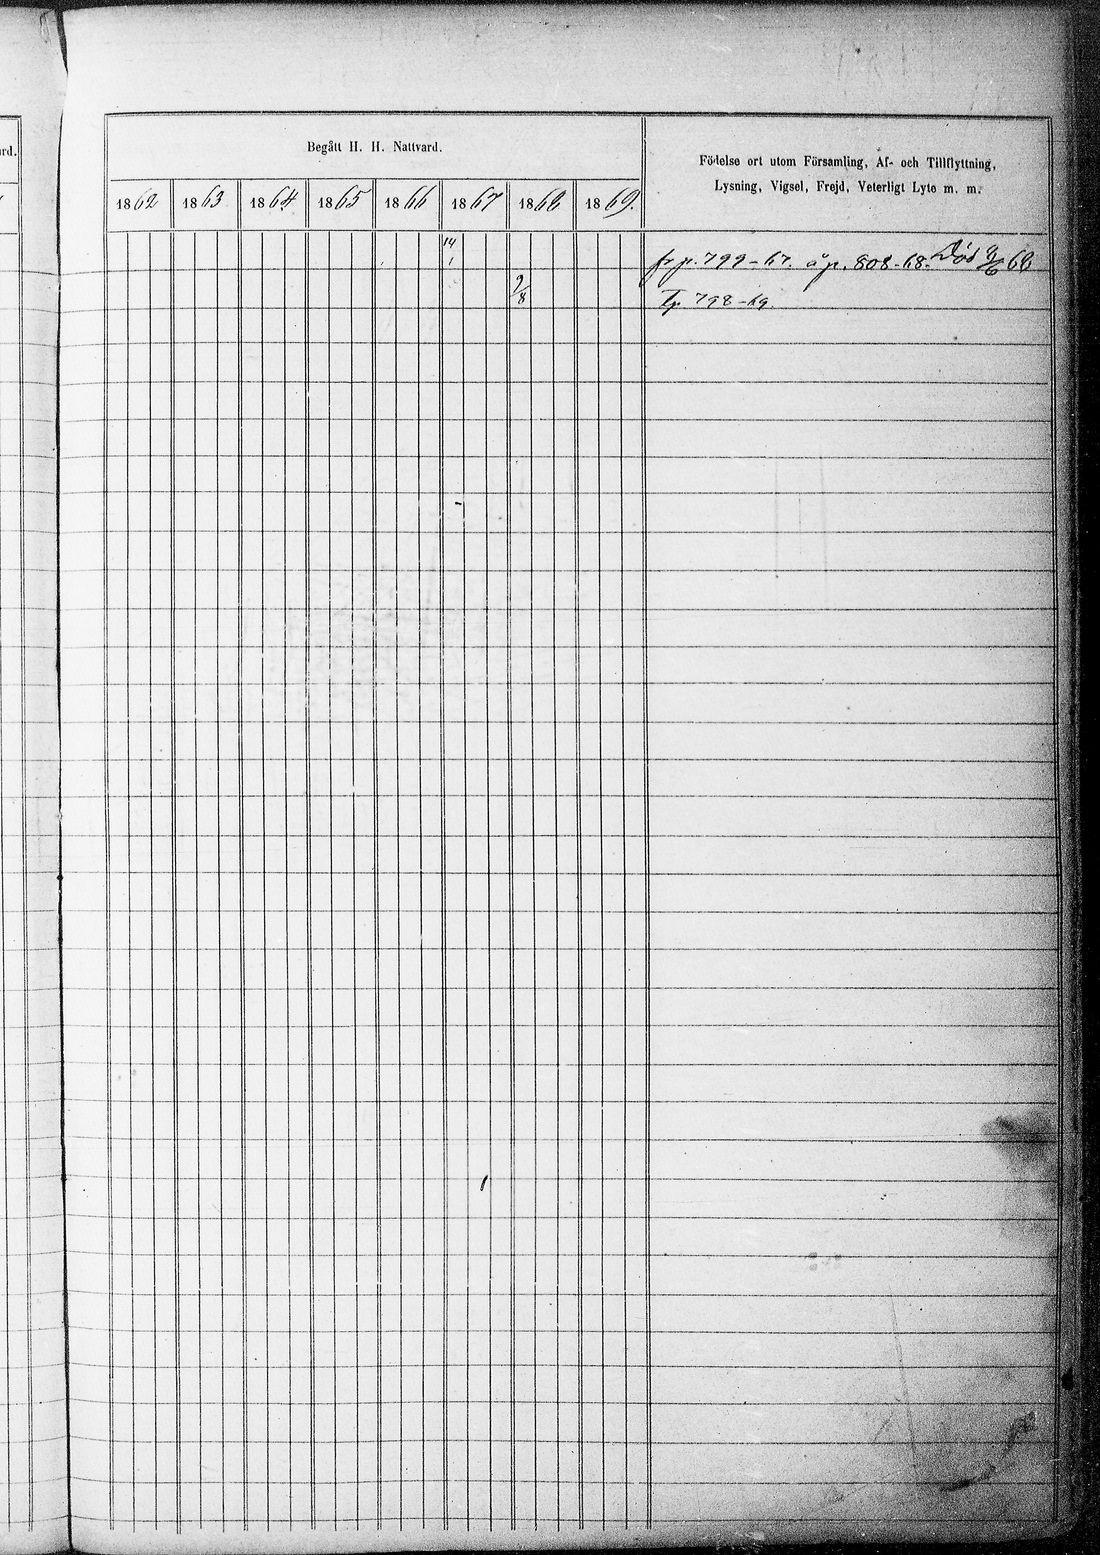 rd.
Begått H. H. Nattvard.
Födelse ort utom Församling, Af- och Tillflyttning,
Lysning, Vigsel, Frejd, Veterligt Lyte m. m.
1862 1863 1864 1865 1866 1867 1868 1869.
14/1 fr p. 799-67. å p. 808-68. Död 9/6 68
9/8 Tp 798-69.